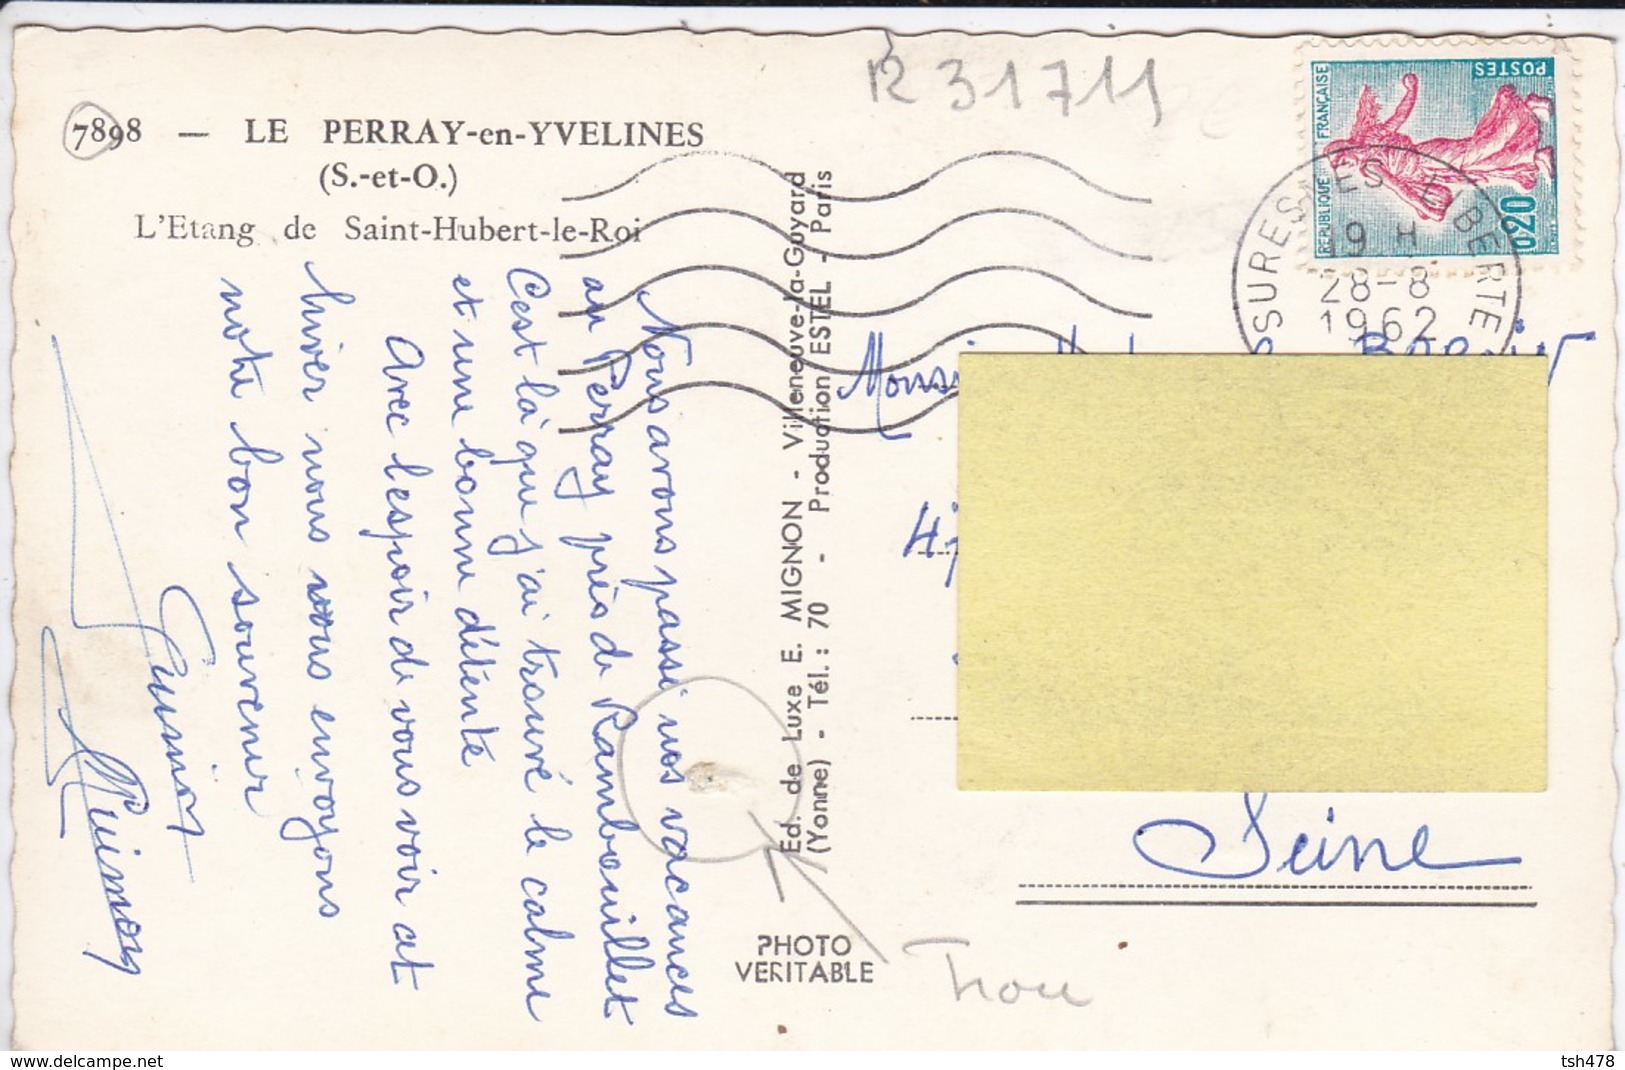 7898 — LE PERRAY-en-YVELINES
(S.-et-O.)
L'Etang de Saint-Hubert-le-Roi
R 31711
REPUBLIQUE FRANÇAISE
POSTES
0,20
SURESNES LIBERTE
19 H
28-8
1962
Nous avons passé nos vacances
au Perray près de Rambouillet
C'est là que j'ai trouvé le calme
et une bonne détente
Avec l'espoir de vous voir cet
hiver nous vous envoyons
notre bon souvenir
Ed. de Luxe E. MIGNON - Villeneuve-la-Guyard
(Yonne) - Tél. : 70 - Production ESTEL - Paris
PHOTO
VERITABLE
Trou
Seine
www.delcampe.net
tsh478